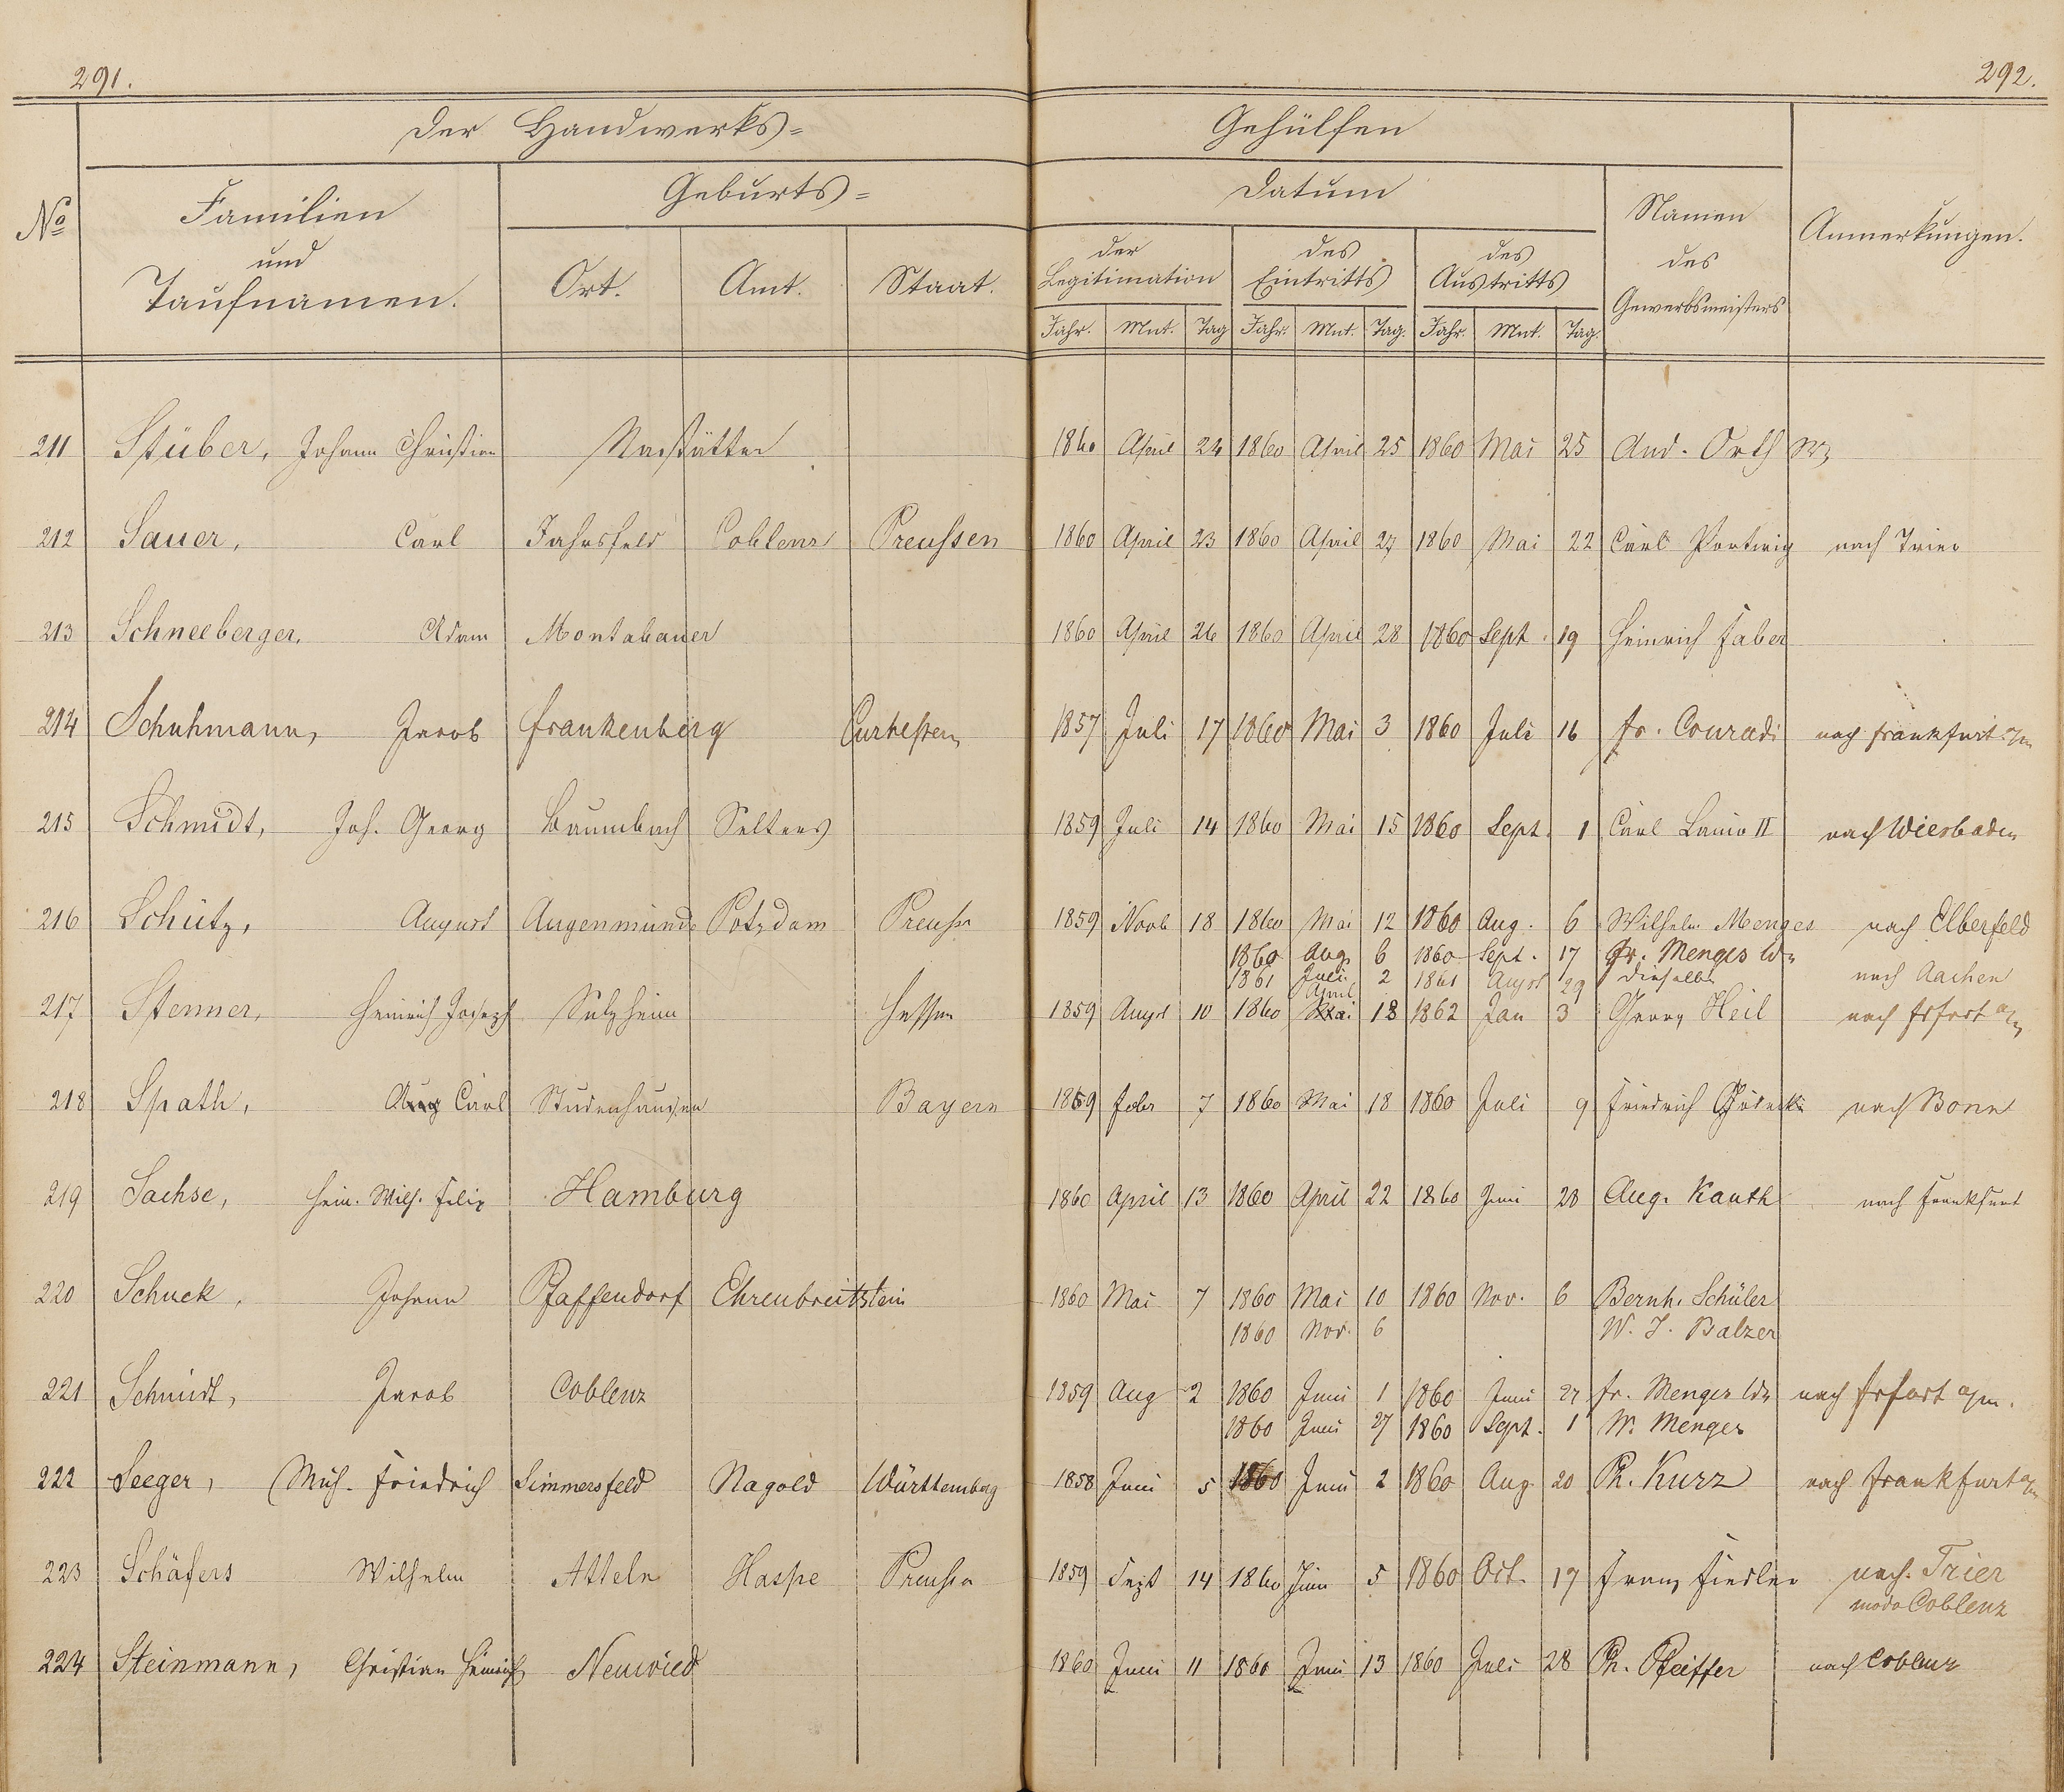 291.
292.
Der Handwerks=
Gehülfen
No
Familien
und
Taufnamen.
Geburts=
Ort.
Amt.
Staat.
Datum
der
Legitimation
des
Eintritts
des
Austritts
Jahr. Mnt. Tag Jahr. Mnt. Tag. Jahr. Mnt. Tag.
Namen
des
Gewerbsmeisters
Anmerkungen.
211 Stüber, Johann Christian Nastätten 1860 April 24 1860 April 25 1860 Mai 25 And. Orth
212 Sauer, Carl Jahrsfeld Coblenz Preussen 1860 April 23 1860 April 27 1860 Mai 22 Carl nach Trier
213 Schneeberger, Adam Montabauer 1860 April 26 1860 April 28 1860 Sept. 19 Heinrich Faber
214 Schuhmann, Jacob Frankenberg Curhessen 1857 Juli 17 1860 Mai 3 1860 Juli 16 Fr. Conradi nach Frankfurt a/m
215 Schmidt, Joh. Georg Baumbach Selters 1859 Juli 14 1860 Mai 15 1860 Sept. 1 Carl II nach Wiesbaden
216 Schütz, August Angermünde Potsdam Preussen 1859 Novb 18 1860 Mai 12 1860 Aug. 6 Wilhelm Menges nach Elberfeld
1860 Aug 6 1860 Sept. 17 Fr. Menges
1861 Juli 2 1861 Augst 29 Dieselbe nach Aachen
April
217 Stenner, Heinrich Joseph Sulzheim Hessen 1859 Augst 10 1860 Mai 18 1862 Jan 3 Georg Heil nach Frkfort a/m
218 Spath, Aug Carl Bayern 1859 Febr 7 1860 Mai 18 1860 Juli 9 Friedrich nach Bonn
219 Sachse, Hein. Wilh. Felix Hamburg 1860 April 13 1860 April 22 1860 Juni 28 Aug. Kauth nach Frankfurt
220 Schuck, Johann Pfaffendorf Ehrenbreitstein 1860 Mai 7 1860 Mai 10 1860 Nov. 6 Bernh. Schüler
1860 Nov. 6 W. J. Balzer
221 Schmidt, Jacob Coblenz 1859 Aug 2 1860 Juni 1 1860 Juni 27 Fr. Menges nach Frkfort a/m.
1860 Juni 27 1860 Sept. 1 W. Menges
222 Seeger, Friedrich Simmersfeld Nagold Württemberg 1858 Juni 5 1860 Juni 2 1860 Aug 20 Ph. Kurz nach Frankfurt a/m
223 Schäfers Wilhelm Atteln Haspe Preussen 1859 Sept 14 1860 Juni 5 1860 Oct. 17 Franz Fiedler nach Trier
modo Coblenz
224 Steinmann, Christian Heinrich Neuwied 1860 Juni 11 1860 Juni 13 1860 Juli 28 Ph. Pfeiffer nach Coblenz